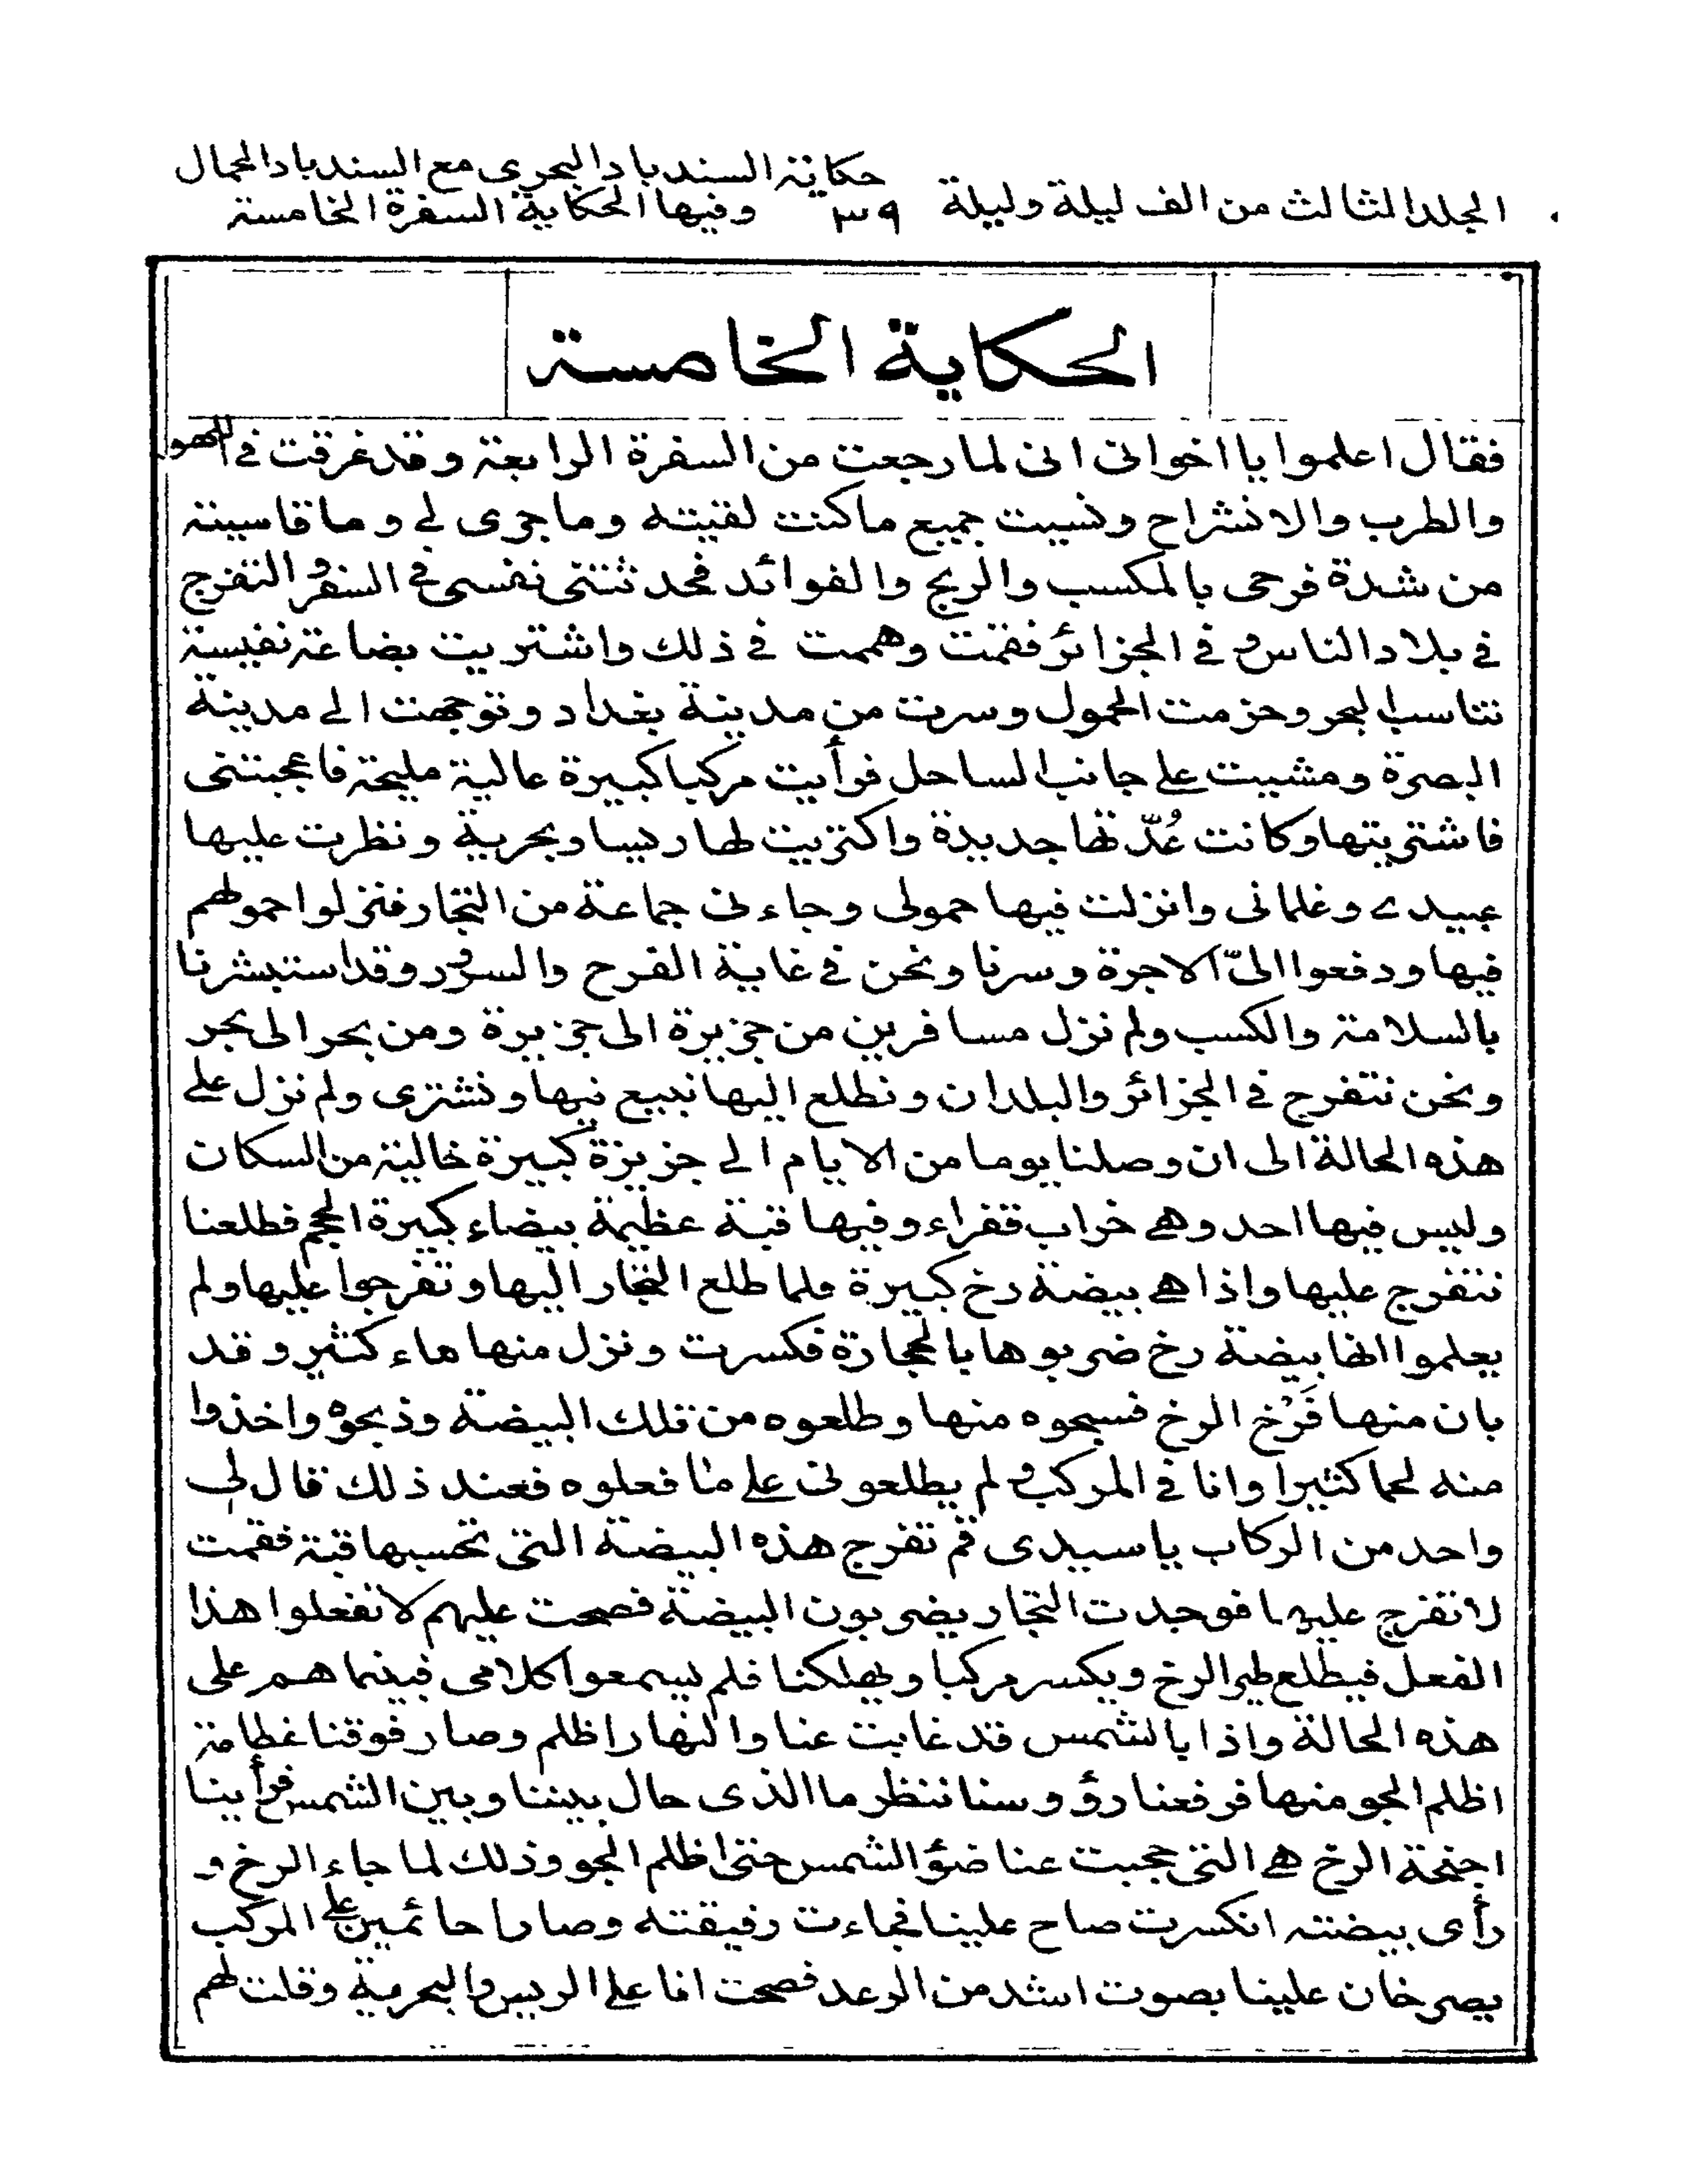 المجلد الثالث من الف ليلة وليلة ٣٩ حكاية السندباد البحرى مع السندباد الحمال
وفيها الحكاية السفرة الخامسة
الحكاية الخامسة
فقال اعلموا يا اخوانى انى لما رجعت من السفرة الرابعة وقد غرقت فى اللهو
والطرب والانشراح ونسيت جميع ماكنت لقيته وما جرى لى وما قاسيته
من شدة فرحى بالمكسب والربح والفوائد فحدثتنى نفسى فى السفر والتفرج
فى بلاد الناس وفى الجزائر فقمت وهممت فى ذلك واشتريت بضاعة نفيسة
تناسب البحر وحزمت الحمول وسرت من مدينة بغداد وتوجهت الى مدينة
البصرة ومشيت على جانب الساحل فرأيت مركبا كبيرة عالية مليحة فاعجبتنى
فاشتريتها وكانت عُدّتها جديدة واكتريت لها رييسا وبحرية ونظرت عليها
عبيدى وغلمانى وانزلت فيها حمولى وجاءنى جماعة من التجار فنزلوا حمولهم
فيها ودفعوا الىّ الاجرة وسرنا ونحن فى غاية الفرح والسرور وقد استبشرنا
بالسلامة والكسب ولم نزل مسافرين من جزيرة الى جزيرة ومن بحر الى بحر
ونحن نتفرج فى الجزائر والبلدان ونطلع اليها نبيع فيها ونشترى ولم نزل على
هذه الحالة الى ان وصلنا يوما من الايام الى جزيرة كبيرة خالية من السكان
وليس فيها احد وهى خراب قفراء وفيها قبة عظيمة بيضاء كبيرة الحجم فطلعنا
نتفرج عليها واذا هى بيضة رخ كبيرة فلما طلع التجار اليها وتفرجوا عليها ولم
يعلموا انها بيضة رخ ضربوها بالحجارة فكسرت ونزل منها ماء كثير وقد
بان منها فَرْخ الرخ فسحبوه منها وطلعوه من تلك البيضة وذبحوه واخذوا
منه لحما كثيرا وانا فى المركب ولم يطلعونى على ما فعلوه فعند ذلك قال لى
واحد من الركاب يا سيدى قم تفرج هذه البيضة التى تحسبها قبة فقمت
لاتفرج عليها فوجدت التجار يضربون البيضة فصحت عليهم لا تفعلوا هذا
الفعل فيطلع طير الرخ ويكسر مركبا ويهلكنا فلم يسمعوا كلامى فبينما هم على
هذه الحالة واذا بالشمس قد غابت عنا والنهار اظلم وصار فوقنا غمامة
اظلم الجو منها فرفعنا رؤوسنا ننظر ما الذى حال بيننا وبين الشمس فرأينا
اجنحة الرخ هى التى حجبت عنا ضؤ الشمس حتى اظلم الجو وذلك لما جاء الرخ و
رأى بيضته انكسرت صاح علينا فجاءت رفيقته وصارا حائمين على المركب
يصرخان علينا بصوت اشد من الرعد فصحت انا على الرييس والبحرية وقلت لهم